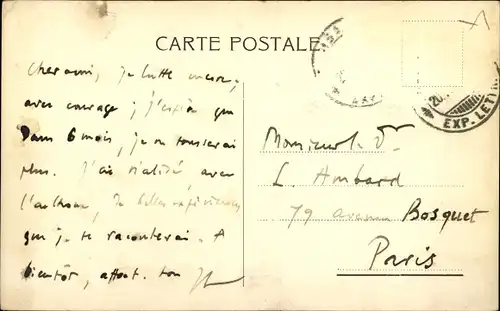 CARTE POSTALE
Cher ami, je lutte encore,
avec courage ; j'espère que
dans 6 mois, je ne tousserai
plus. J'ai réalisé, avec
de belles expériences
que je te raconterai. A
bientôt, affect. ton
Monsieur le Dr
L. Ambard
79 avenue Bosquet
Paris
EXP. LETT
20.